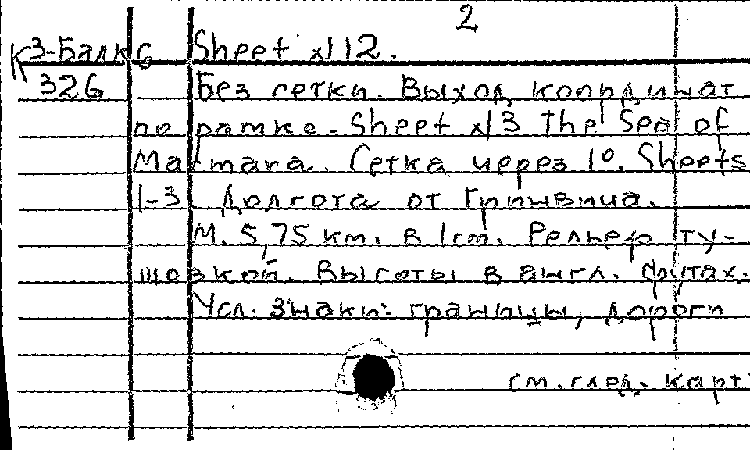 2
К3-Балк 6 Sheet №12.
326 Без сетки. Выход координат
по рамке. Sheet №3 The Sea of
Marmara. Сетка через 1°. Sheets
1-3 Долгота от Гринвича.
М. 5,75 км. в 1см. Рельеф ту-
шевкой. Высоты в англ. футах.
Усл. знаки: границы, дороги
см. след. карт